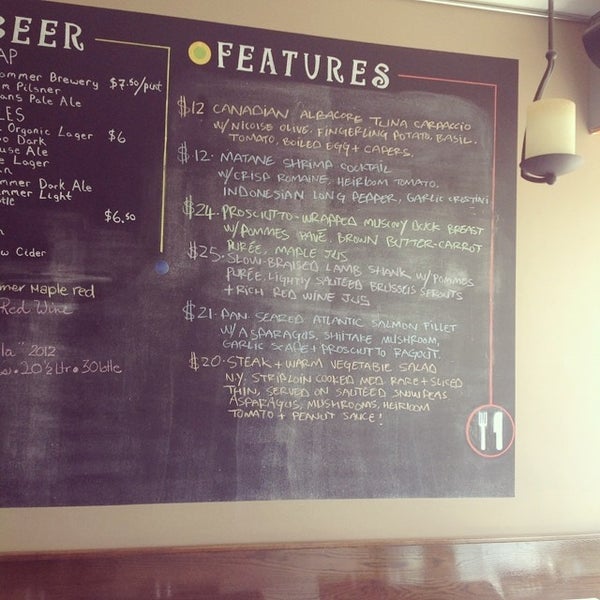 BEER
AP
ommer Brewery $7.50/pint
n Pilsner
ans Pale Ale
LES
Organic Lager $6
o Dark
use Ale
e Lager
mmer Dark Ale
mmer Light
$6.50
w Cider
mer Maple red
Red Wine
la" 2012
20 1/2 Ltr 30 btle
FEATURES
$12 CANADIAN ALBACORE TUNA CARPACCIO
W/ NICOISE OLIVE. FINGERLING POTATO, BASIL.
TOMATO, BOILED EGG + CAPERS.
$12. MATANE SHRIMP COCKTAIL
W/ CRISP ROMAINE, HEIRLOOM TOMATO.
INDONESIAN LONG PEPPER, GARLIC CROSTINI
$24. PROSCIUTTO-WRAPPED MUSCOVY DUCK BREAST
W/ POMMES PAVÉ, BROWN BUTTER-CARROT
PURÉE, MAPLE JUS
$25. SLOW-BRAISED LAMB SHANK, W/ POMMES
PURÉE, LIGHTLY SAUTÉED BRUSSELS SPROUTS
+ RICH RED WINE JUS
$21. PAN SEARED ATLANTIC SALMON FILLET
W/ ASPARAGUS, SHIITAKE MUSHROOM,
GARLIC SCAPE + PROSCIUTTO RAGOUT.
$20. STEAK + WARM VEGETABLE SALAD
N.Y. STRIPLOIN COOKED MED RARE + SLICED
THIN, SERVED ON SAUTÉED SNOW PEAS
ASPARAGUS, MUSHROOMS, HEIRLOOM
TOMATO + PEANUT SAUCE!